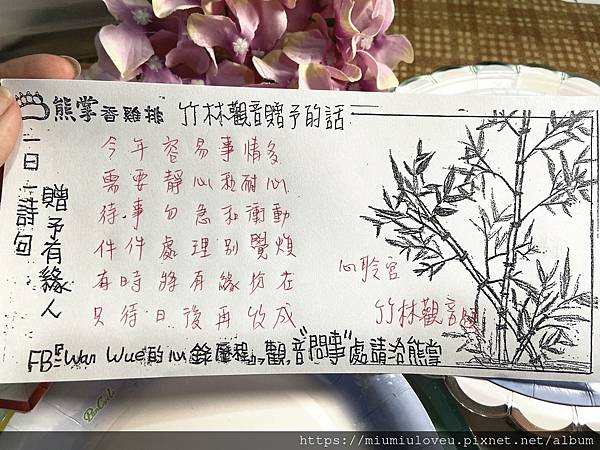 熊掌香雞排 竹林觀音贈予的話
一日一詩句
贈予有緣人
今年容易事情多
需要靜心和耐心
待事勿急和衝動
件件處理別覺煩
有時將有緣份在
只待日後再收成
心聆宮
竹林觀音
FB：Wan Wue的心錄歷程，觀音"問事"處請洽熊掌
https://miumiuloveu.pixnet.net/album